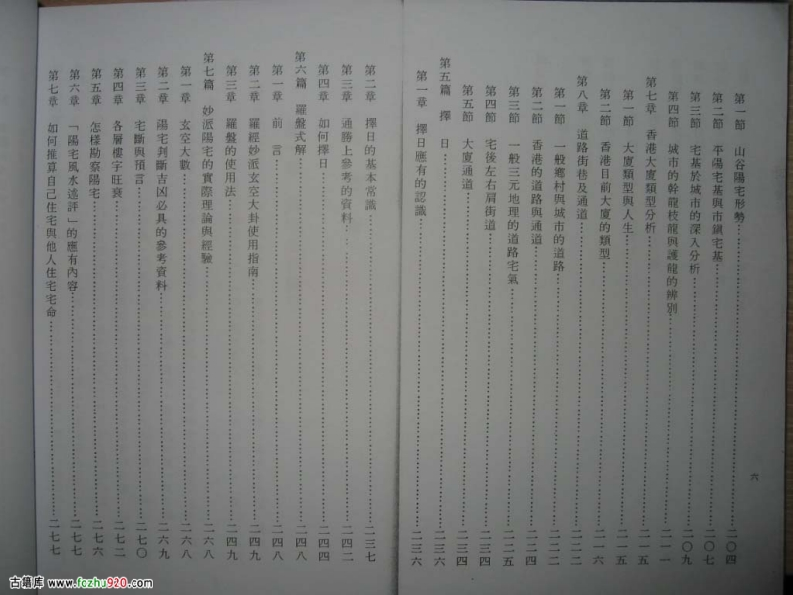 第一節 山谷陽宅形勢⋯⋯二〇四
第二節 平陽宅基與市鎮宅基⋯⋯二〇七
第三節 宅基於城市的深入分析⋯⋯二〇九
第四節 城市的幹龍枝龍與護龍的辨別⋯⋯二一一
第七章 香港大廈類型分析⋯⋯二一五
第一節 大廈類型與人生⋯⋯二一五
第二節 香港目前大廈的類型⋯⋯二一六
第八章 道路街巷及通道⋯⋯二二一
第一節 一般鄉村與城市的道路⋯⋯二二二
第二節 香港的道路與通道⋯⋯二二四
第三節 一般三元地理的道路宅氣⋯⋯二二五
第四節 宅後左右肩街道⋯⋯二三四
第五節 大廈通道⋯⋯二三四
第五篇 擇日⋯⋯二三六
第一章 擇日應有的認識⋯⋯二三六
六
第二章 擇日的基本常識⋯⋯二三七
第三章 通勝上參考的資料⋯⋯二四二
第四章 如何擇日⋯⋯二四四
第六篇 羅盤式解⋯⋯二四八
第一章 前言⋯⋯二四八
第二章 羅經妙派玄空大卦使用指南⋯⋯二四九
第三章 羅盤的使用法⋯⋯二四九
第七篇 妙派陽宅的實際理論與經驗⋯⋯二六八
第一章 玄空大數⋯⋯二六八
第二章 陽宅判斷吉凶必具的參考資料⋯⋯二六九
第三章 宅斷與預言⋯⋯二七〇
第四章 各層樓宇旺衰⋯⋯二七二
第五章 怎樣勘察陽宅⋯⋯二七六
第六章 「陽宅風水遙評」的應有內容⋯⋯二七七
第七章 如何推算自己住宅與他人住宅宅命⋯⋯二七七
古籍库 www.fczhu920.com